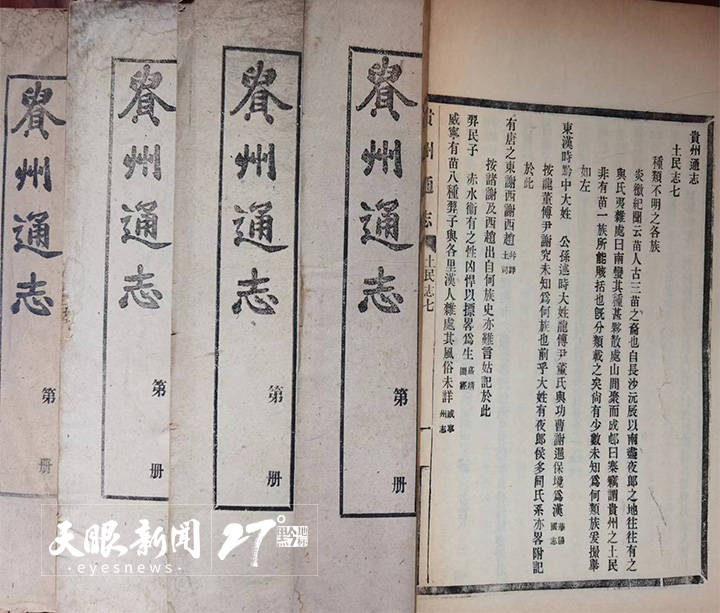 貴州通志
第 册
貴州通志
第 册
貴州通志
第 册
貴州通志
第 册
貴州通志
土民志七
種類不明之各族
炎徼紀聞云苗人古三苗之裔也自長沙沅辰以南盡夜郎之地往往有之
與氐夷雜處曰南蠻其種甚夥散處山間聚而成邨曰寨竊謂貴州之土民
非有苗一族所能賅括也旣分類載之矣尙有少數未知爲何類族爰撮舉
如左
東漢時黔中大姓 公孫述時大姓龍傅尹董氏與功曹謝暹保境爲漢 華陽國志
按龍董傅尹謝究未知爲何族也前乎大姓有夜郎侯多同氏系亦畧附記
於此
有唐之東謝西謝西趙 幷詳土司
按諸謝及西趙出自何族史亦難言姑記於此
羿民子 赤水衞有之性凶悍以摽畧爲生 嘉靖圖經
威寧有苗八種羿子與各里漢人雜處其風俗未詳 威寧州志
貴州通志 土民志七 一
天眼新闻 27° 黔地标
eyesnews